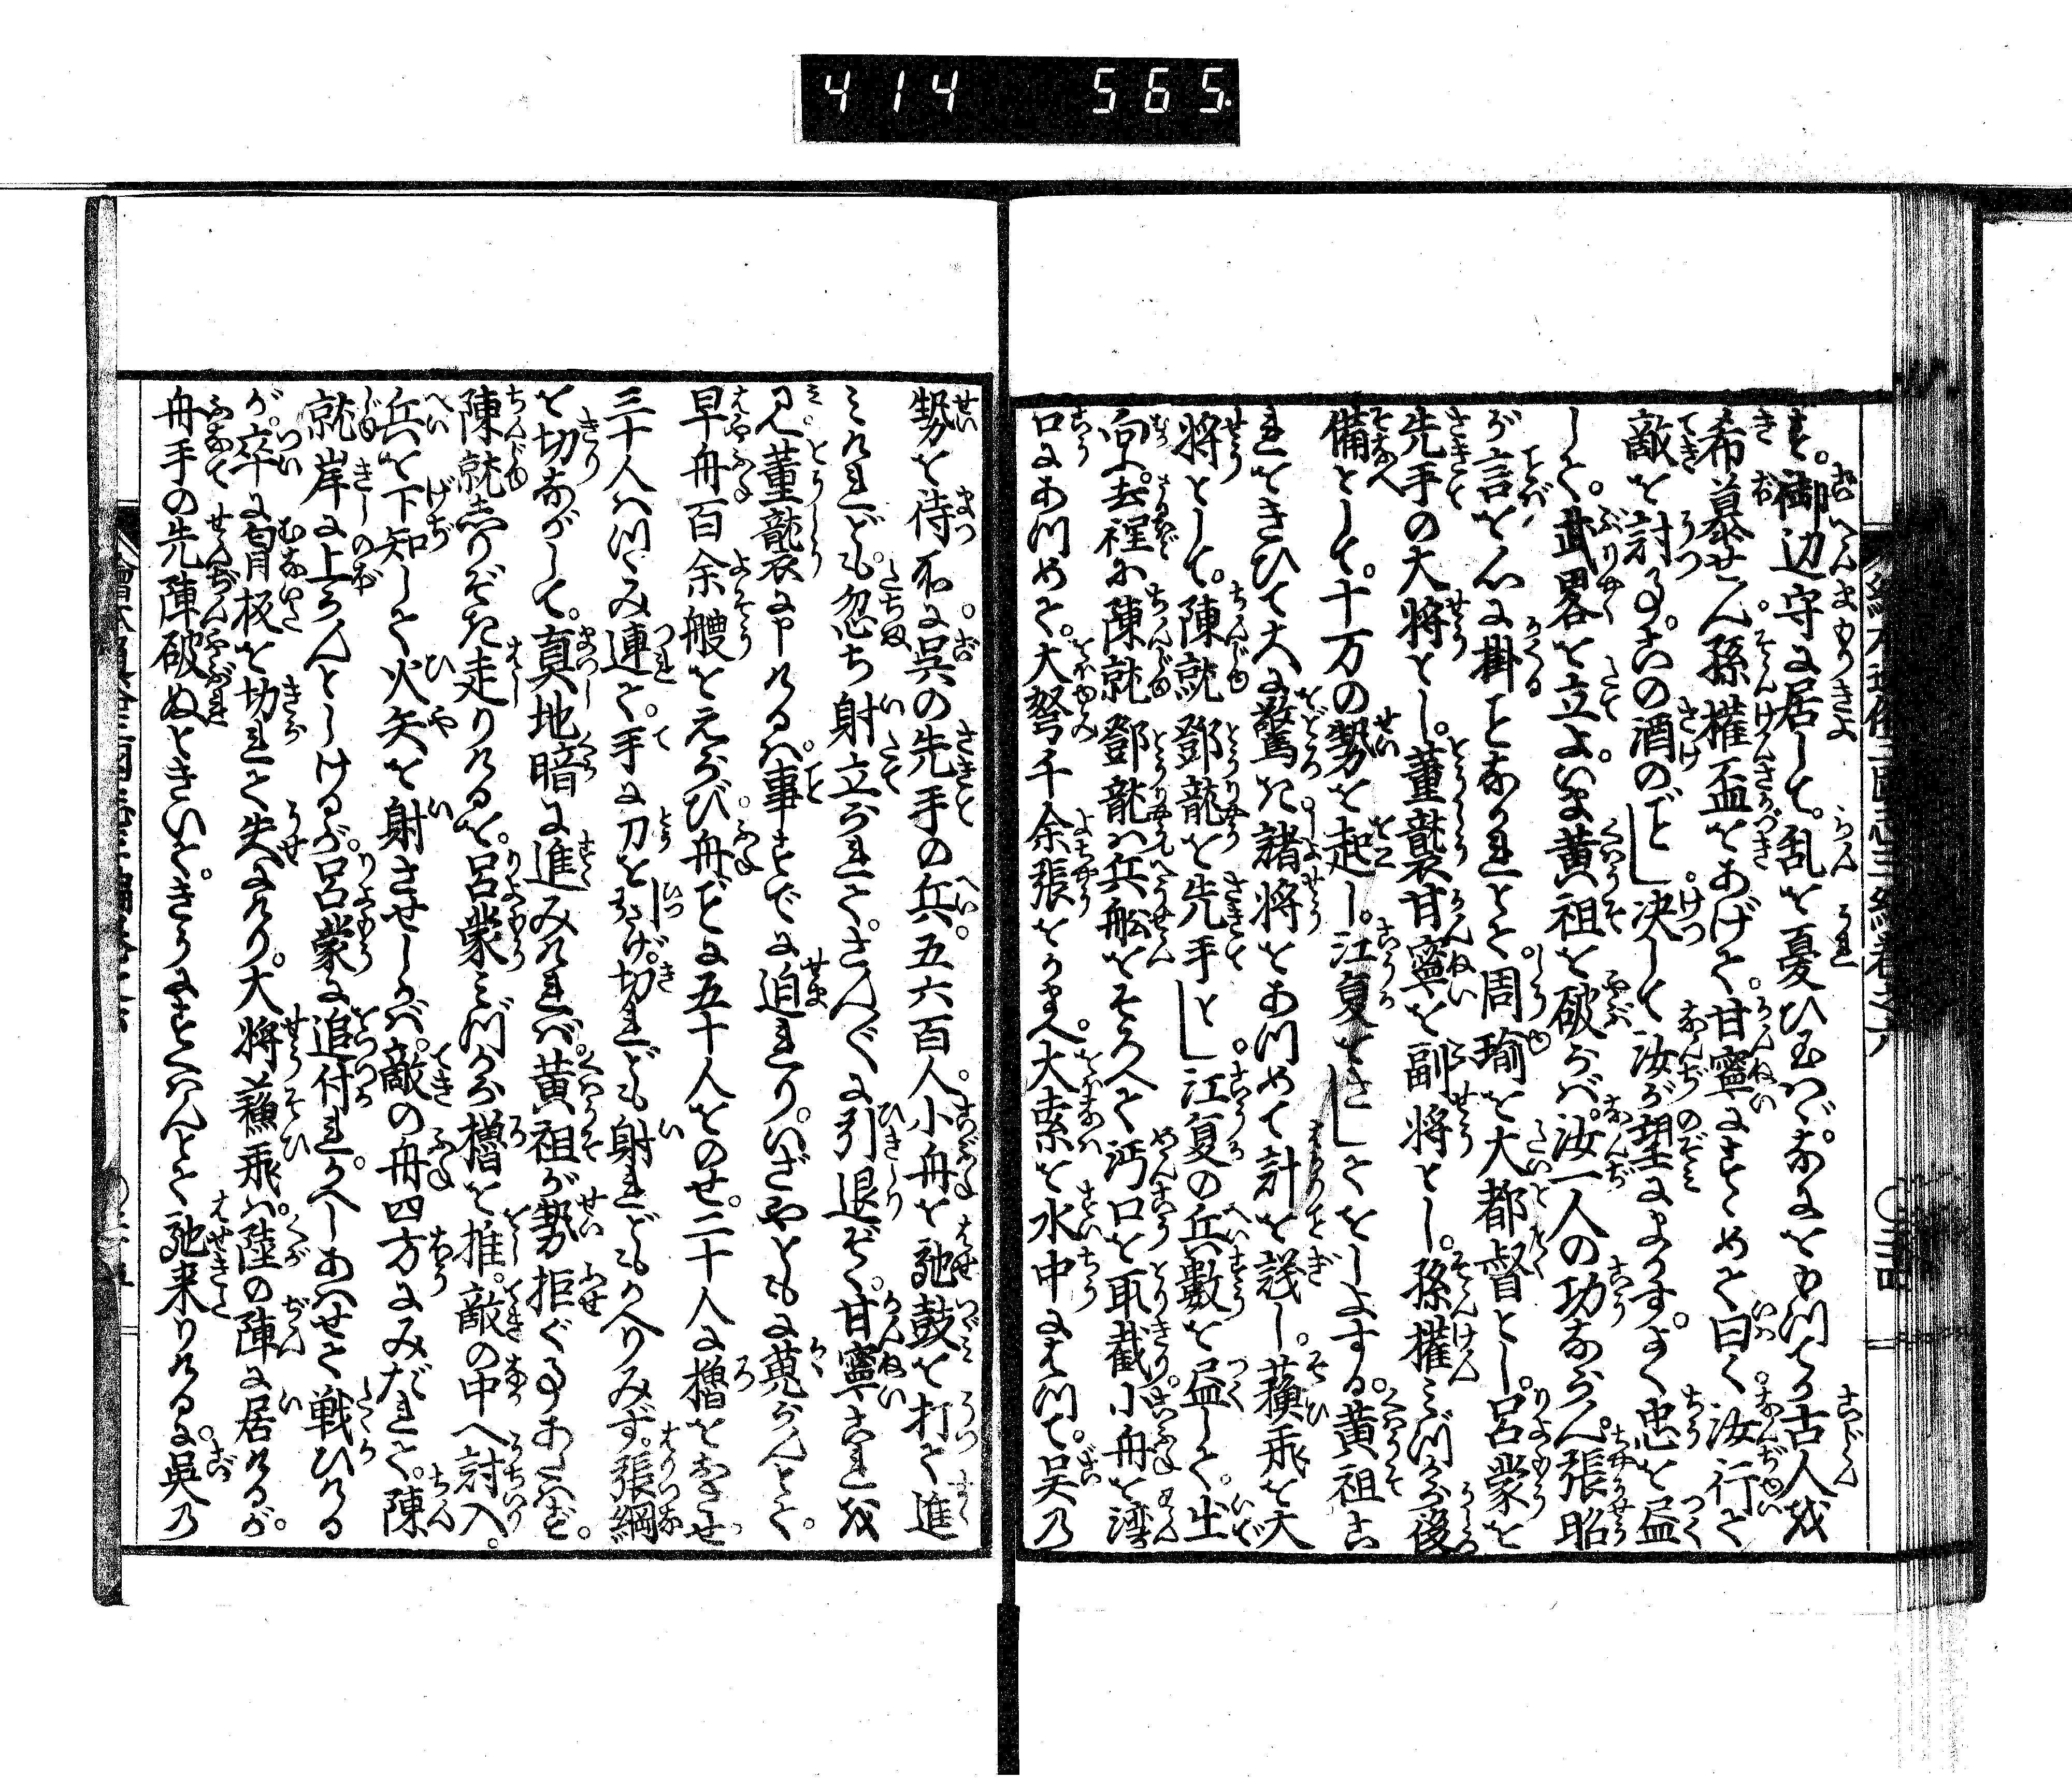 414 565
ず。御辺守に居して。乱を憂ひ玉はゞ。なにをもつてか古人を
希慕せん。孫權盃をあげて。甘寧にすゝめて曰く。汝行て
敵を討事。この酒のごとし。決して汝が望によらす。よく忠を益
して。武畧を立よ。いま黄祖を破らば。汝一人の功ならん。張昭
が言を心に掛ことなかれとて。周瑜を大都督とし。呂蒙を
先手の大将とし。董襲甘寧を副将とし。孫權みづから後
備として。十万の勢を起し。江夏をさしてをしよする。黄祖こ
れをきひて大に驚き諸将をあつめて計を議し。蘓飛を大
将として。陳就鄧龍を先手とし。江夏の兵數を盡して。出
向ふ。去程に陳就鄧龍は兵舩をそろへて沔口を取截小舟を湾
口にあつめて。大弩千余張をかまへ。大索を水中にはつて。吴乃
勢を待ところに。呉の先手の兵。五六百人。小舟を馳鼓を打て進
みけれども忽ち射立られて。さん〴〵に引退ぞく。甘寧これを
見。董襲に申けるは。事すでに迫れり。いざやともに蒐らんとて。
早舟百余艘をえらび。舟ごとに五十人をのせ。二十人に櫓をおさせ。
三十人はつゝみ連て。手に刀を引さげ。切れども射れどもかへりみず。張綱
を切ながして。真地暗に進みければ。黄祖が勢拒ぐ事あたはず。
陳就しりぞき走りけるを。呂蒙みづから櫓を推。敵の中へ討入。
兵を下知して火矢を射させしかば。敵の舟四方にみだれて。陳
就岸に上らんとしけるが。呂蒙に追付れ。かへしあはせて戦ひける
が。卒に胷板を切れて失にけり。大将蘓飛は。陸の陣に居けるが。
舟手の先陣破ぬときいて。きうにすくはんとて馳来りけるに。吴乃